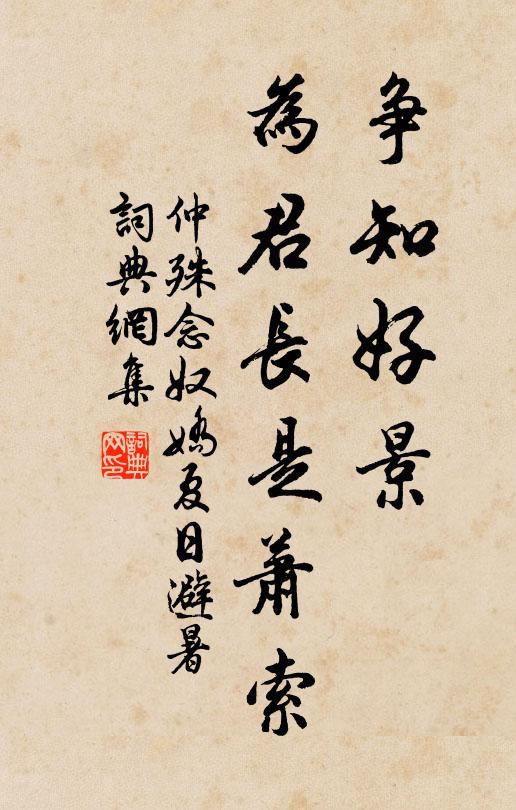 争知好景
為君長是蕭索
仲殊念奴嬌夏日避暑
詞典網集
詞典
网印